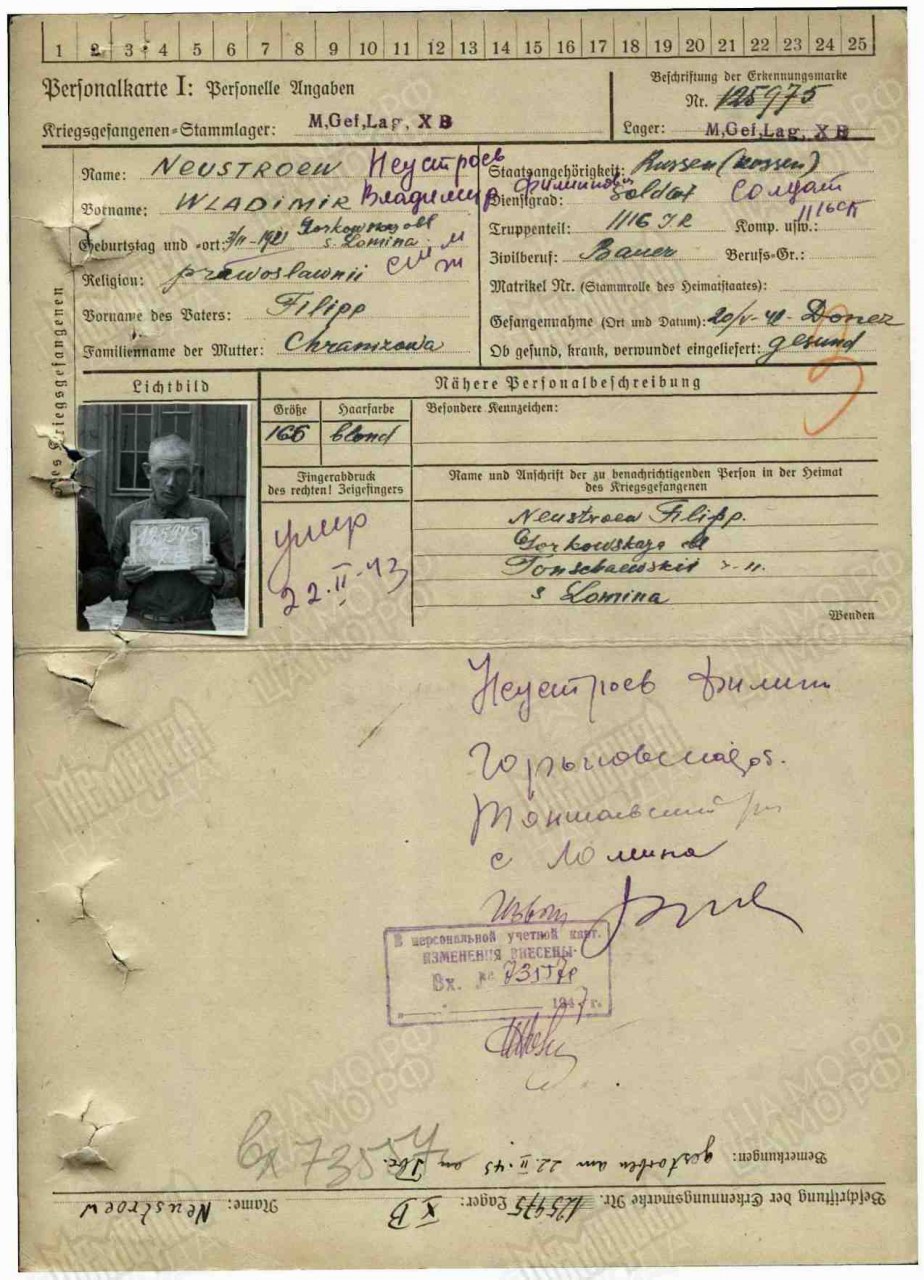 1 2 3 4 5 6 7 8 9 10 11 12 13 14 15 16 17 18 19 20 21 22 23 24 25
Personalkarte I: Personelle Angaben
Kriegsgefangenen-Stammlager: M.Gef.Lag. XB
Beschriftung der Erkennungsmarke
Nr. 125975
Lager: M.Gef.Lag. XB
des Kriegsgefangenen
Name: NEUSTROEW Неустроев
Vorname: WLADIMIR Владимир
Geburtstag und -ort: Gorkowskaj obl s. Lomina
Religion: prawoslawnii
Vorname des Vaters: Filipp
Familienname der Mutter:
Staatsangehörigkeit: Russen
Dienstgrad: Soldat Солдат
Truppenteil: 1116 J.R. Komp. usw.: 1116 сп
Zivilberuf: Bauer Berufs-Gr.:
Matrikel Nr. (Stammrolle des Heimatstaates):
Gefangennahme (Ort und Datum): Donez
Ob gesund, krank, verwundet eingeliefert: gesund
Lichtbild
Nähere Personalbeschreibung
Größe Haarfarbe Besondere Kennzeichen:
166 blond
Fingerabdruck
des rechten! Zeigefingers
умер
22.II-43
Name und Anschrift der zu benachrichtigenden Person in der Heimat
des Kriegsgefangenen
Neustroew Filipp.
Gorkowskaja obl
Tonschaewskii
s Lomina
Wenden
125975
Неустроев Филипп
Горьковская об.
с Ломина
В персональной учетной карт.
ИЗМЕНЕНИЯ ВНЕСЕНЫ
Вх. №
194 г.
Вх 73557
Bemerkungen: gestorben am 22.II.43 an Tbc.
Beschriftung der Erkennungsmarke Nr. 125975 Lager: XB Name: Neustroew
МЕМОРИАЛ
НАРОДА
ЦАМО РФ